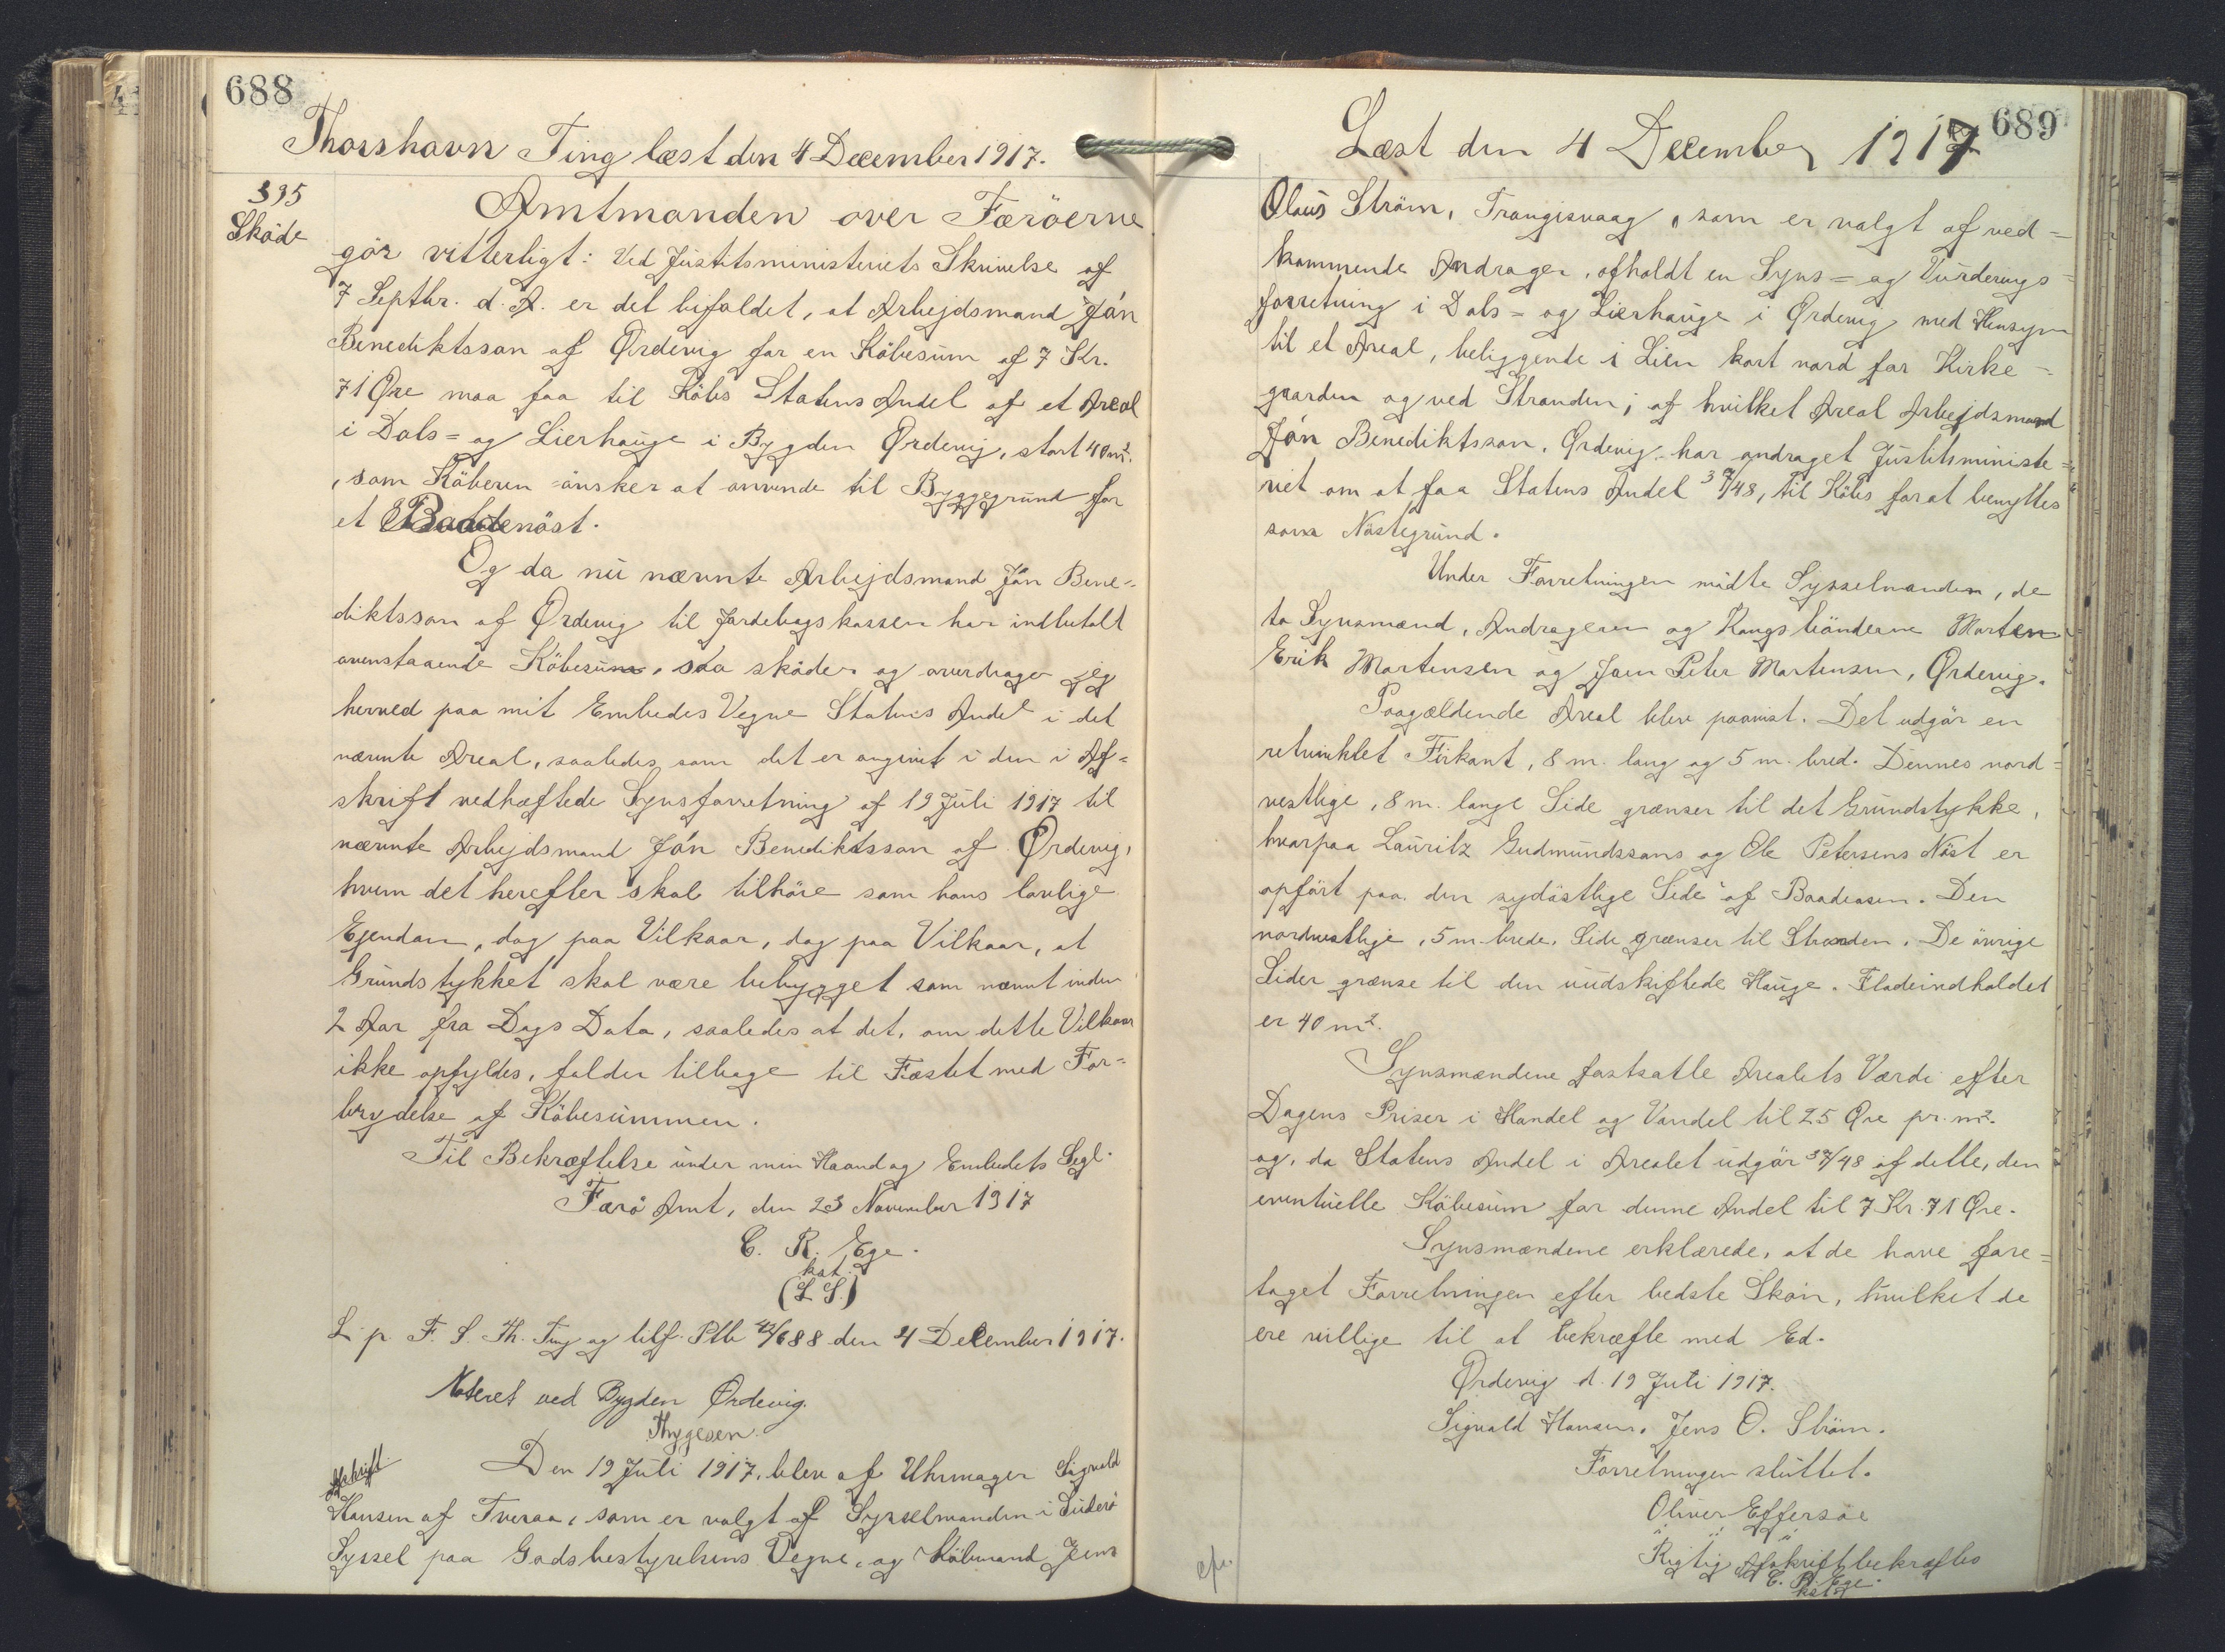 688
Thorshavn Ting læst den 4 December 1917.
395
Sköde
Amtmanden over Færöerne
gör vitterligt: Ved Justitsministeriets Skrivelse af
7 Septbr. d. A. er det bifaldet, at Arbejdsmand Jón
Benediktsson af Ørdevig for en Köbesum af 7 Kr.
71 Øre maa faa til Köbs Statens Andel af et Areal
i Dals= og Lierhauge i Bygden Ørdevig, stort 40 m².
, som Köberen önsker at anvende til Byggegrund for
et Baadenöst.
Og da nu nævnte Arbejdsmand Jón Bene=
diktsson af Ørdevig til Jordebogskassen har indbetalt
ovenstaaende Köbesum, saa sköder og overdrager jeg
herved paa mit Embedes Vegne Statens Andel i det
nævnte Areal, saaledes som det er angivet i den i Af=
skrift vedhæftede Synsforretning af 19 Juli 1917 til
nævnte Arbejdsmand Jón Benediktsson af Ørdevig,
hvem det herefter skal tilhöre som hans lovlige
Ejendom, dog paa Vilkaar, dog paa Vilkaar, at
Grundstykket skal være bebygget som nævnt inden
2 Aar fra Dags Dato, saaledes at det, om dette Vilkaar
ikke opfyldes, falder tilbage til Fæstet med For=
brydelse af Köbesummen.
Til Bekræftelse under min Haand og Embedets Segl.
Færö Amt, den 23 November 1917
C. R. Ege.
kst.
(L S.)
L. p. F. S. Th. Ting og tilf. Ptb 42/688 den 4 December 1917.
Noteret ved Bygden Ørdevig.
Thygesen.
Afskrift
Den 19 Juli 1917, blev af Uhrmager Sigvald
Hansen af Tveraa, som er valgt af Sysselmanden i Suderö
Syssel paa Godsbestyrelsens Vegne, og Köbmand Jens
689
Læst den 4 December 1917
Olaus Ström, Trangisvaag, som er valgt af ved=
kommende Andrager, afholdt en Syns= og Vurderings=
forretning i Dals= og Lierhauge i Ørdevig med Hensyn
til et Areal, beliggende i Lien kort nord for Kirke=
gaarden og ved Stranden; af hvilket Areal Arbejdsmand
Jón Benediktsson, Ørdevig har andraget Justitsministe=
riet om at faa Statens Andel 37/48, til Köbs for at benyttes
som Nöstegrund.
Under Forretningen mödte Sysselmanden, de
to Synsmænd, Andrageren og Kongsbönderne Morten
Erik Mortensen og Joen Peter Mortensen, Ørdevig.
Paagældende Areal blev paavist. Det udgör en
retvinklet Firkant, 8 m. lang og 5 m. bred. Dennes nord=
vestlige, 8 m. lange Side grænser til det Grundstykke,
hvorpaa Lauritz Gudmundssons og Ole Petersens Nöst er
opfört paa den sydöstlige Side af Baadeasen. Den
nordvestlige, 5 m. brede, Side grænser til Stranden. De övrige
Sider grænse til den uudskiftede Hauge. Fladeindholdet
er 40 m².
Synsmændene fastsatte Arealets Værdi efter
Dagens Priser i Handel og Vandel til 25 Øre pr. m².
og, da Statens Andel i Arealet udgör 37/48 af dette, den
eventuelle Köbesum for denne Andel til 7 Kr. 71 Øre.
Synsmændene erklærede, at de have fore=
taget Forretningen efter bedste Skön, hvilket de
ere villige til at bekræfte med Ed.
Ørdevig d. 19 Juli 1917.
Sigvald Hansen. Jens O. Ström.
Forretningen sluttet.
Oliver Effersøe
Rigtig Afskrift bekræftes
C. R. Ege.
kst.